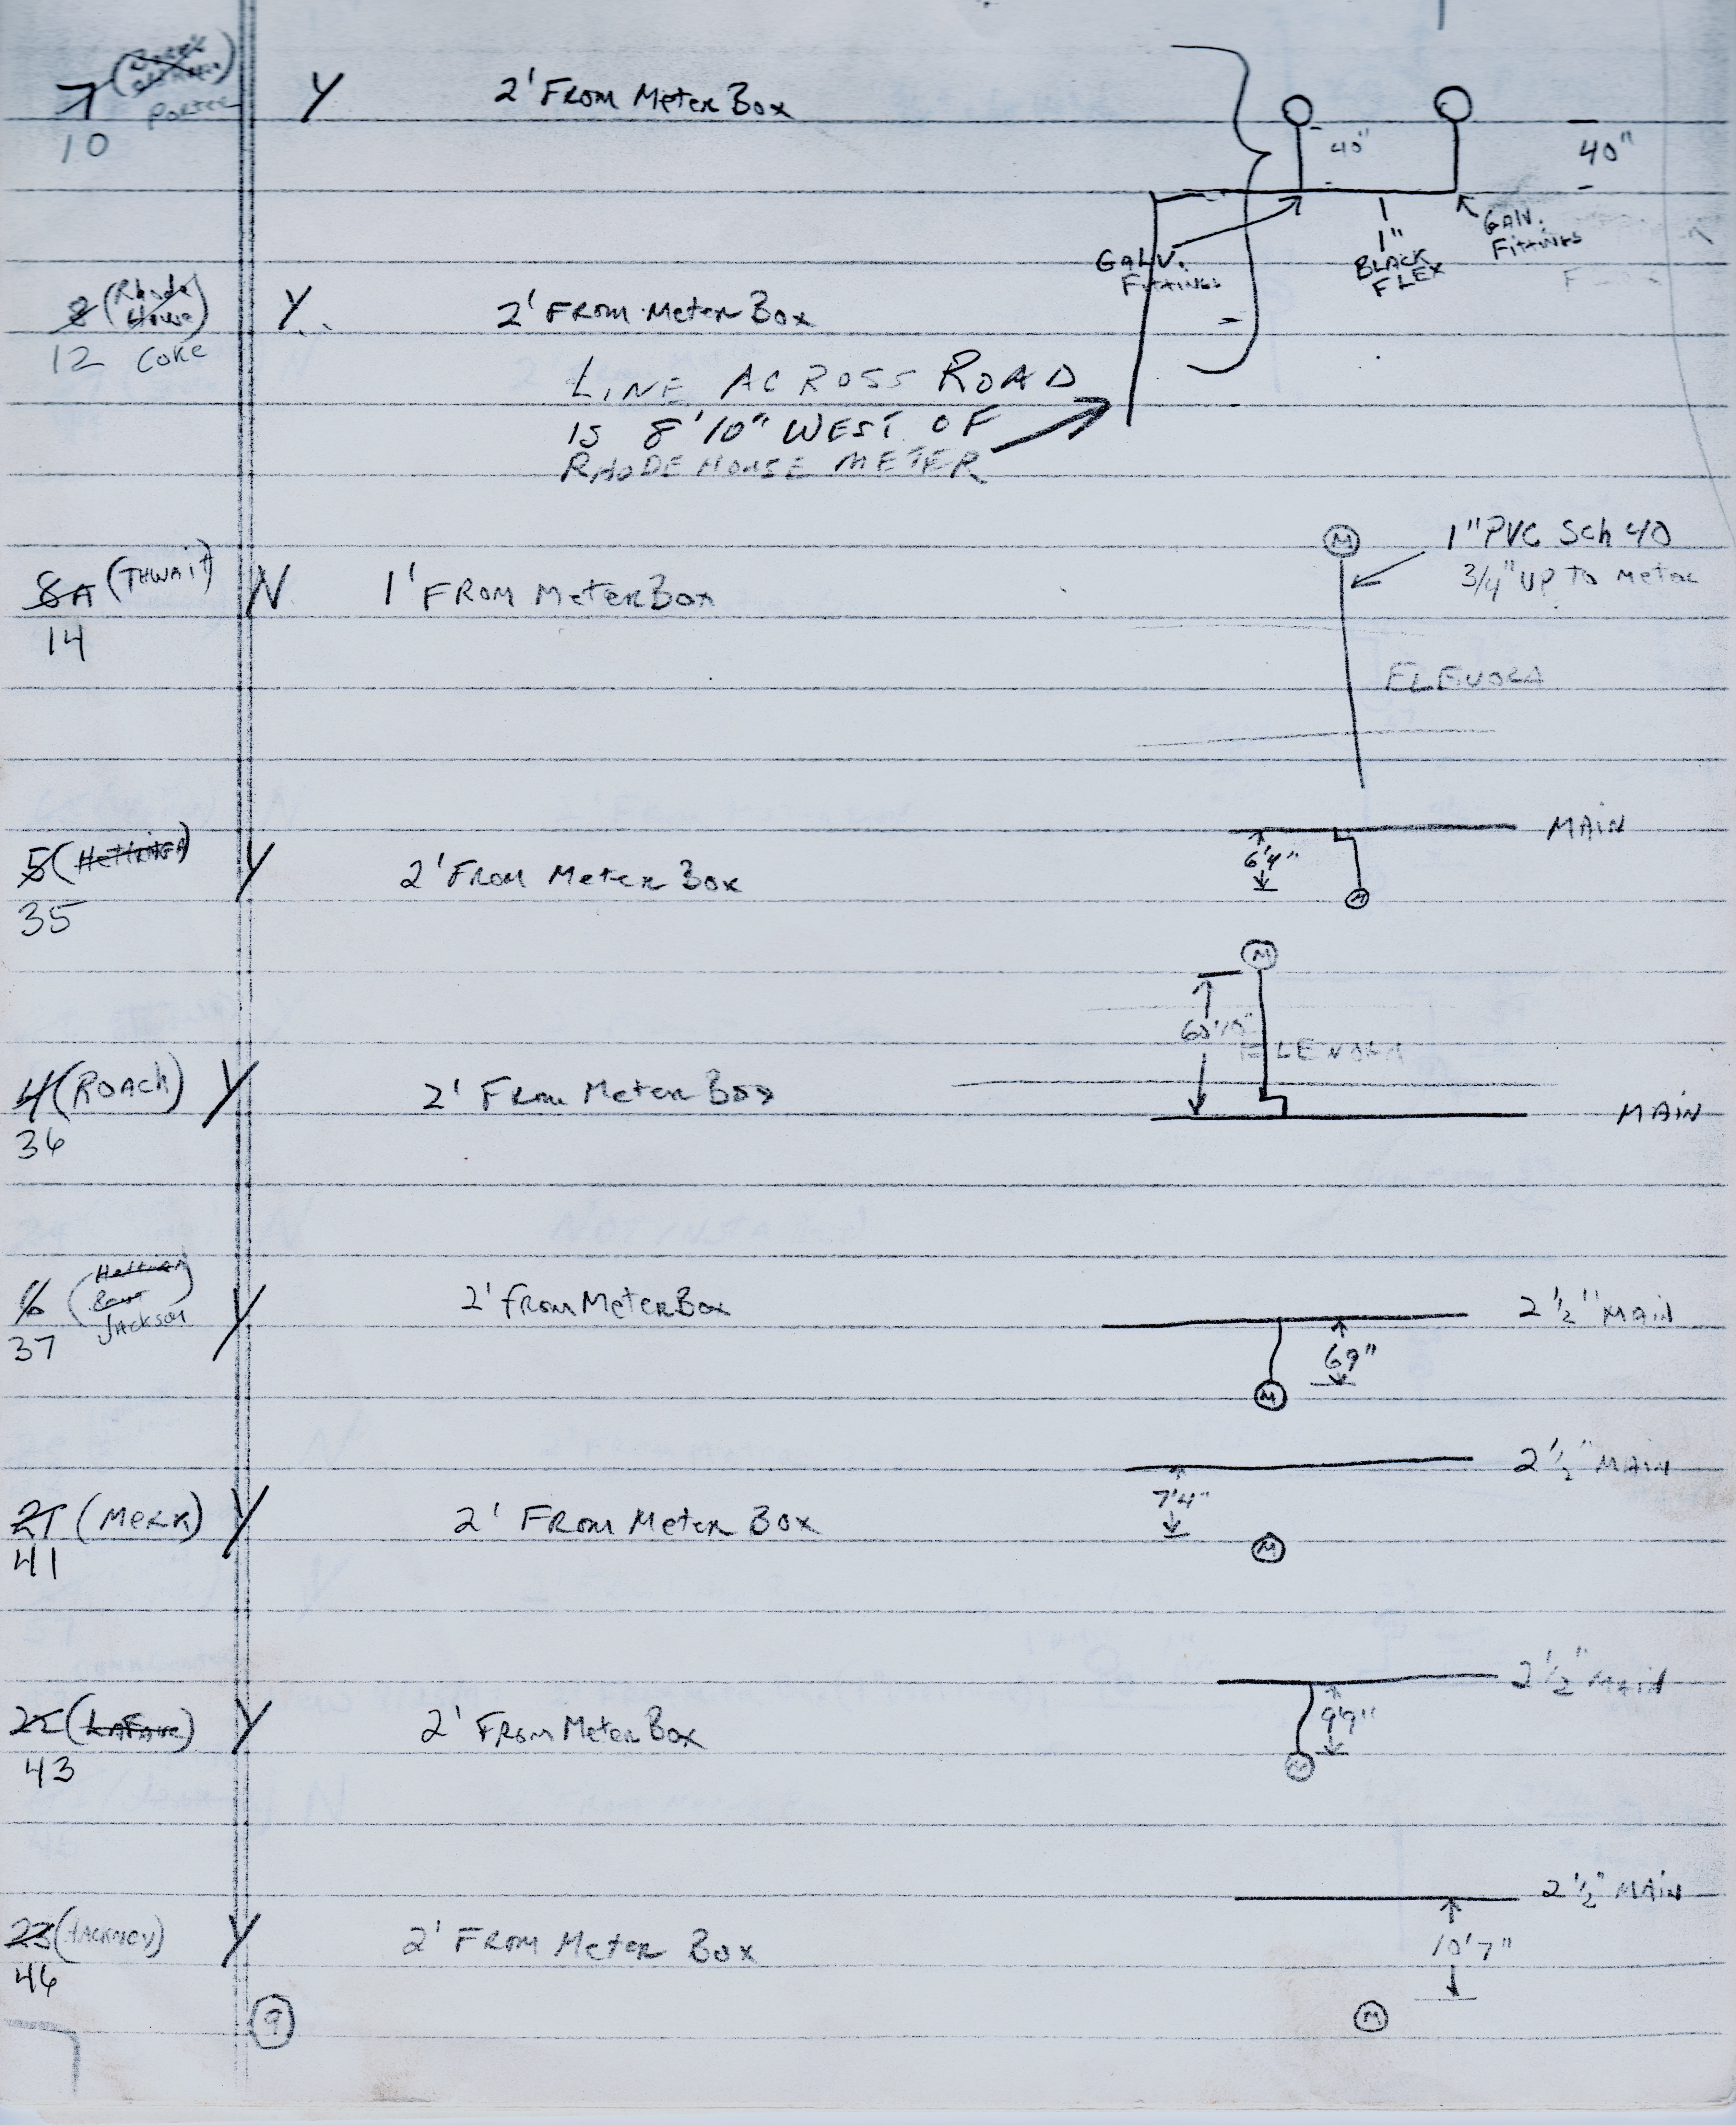 7 (
Porter
10
Y
2' From Meter Box
40"
40"
GALV. Fittings
1" BLACK FLEX
GALV. Fittings
8 (Rhode House)
12 Coke
Y
2' From Meter Box
LINE ACROSS ROAD
IS 8'10" WEST OF
RHODE HOUSE METER
8A (THWAIT)
14
N
1' FROM Meter Box
M
1" PVC Sch 40
3/4" UP TO Meter
ELENORA
5 (Hettinga)
35
Y
2' From Meter Box
MAIN
6'4"
M
4 (ROACH)
36
Y
2' From Meter Box
M
ELENORA
MAIN
6 (
Jackson
37
Y
2' From Meter Box
2 1/2" MAIN
69"
M
21 (Merk)
41
Y
2' From Meter Box
2 1/2" MAIN
7'4"
M
22 (LaFave)
43
Y
2' From Meter Box
2 1/2" MAIN
9'9"
M
23 (HACKNEY)
46
Y
2' From Meter Box
2 1/2" MAIN
10'7"
M
9